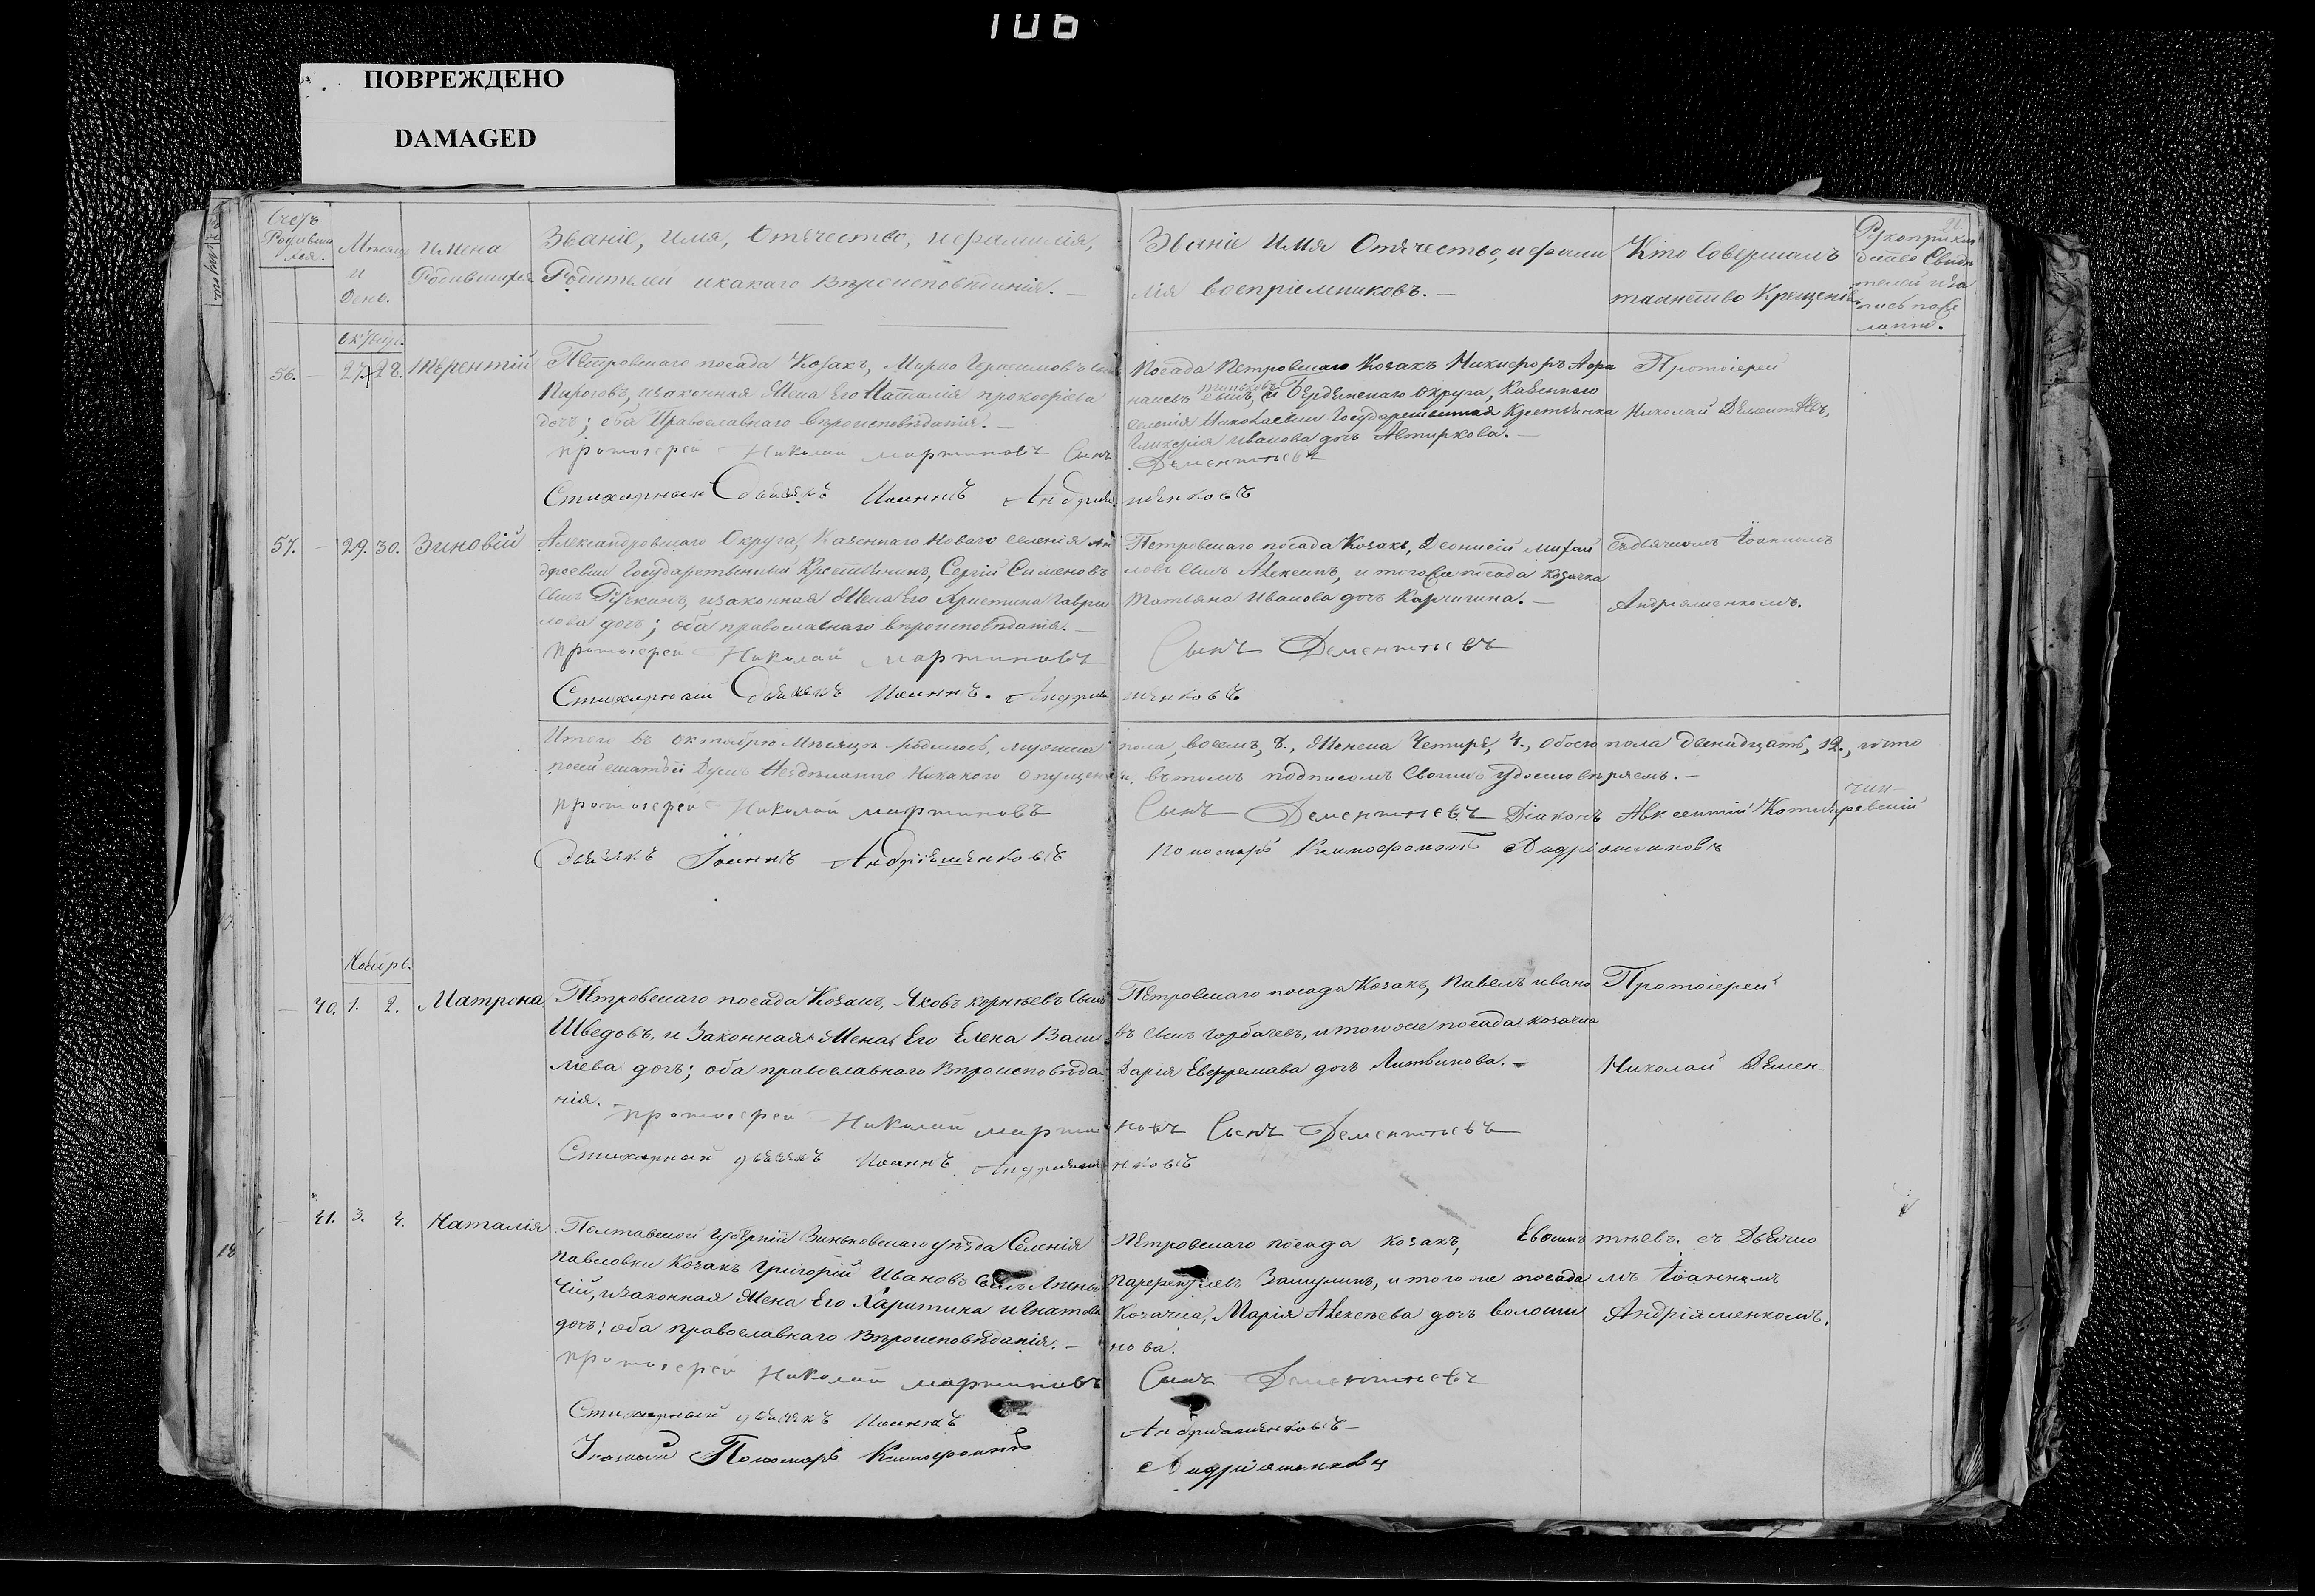 106
ПОВРЕЖДЕНО
DAMAGED
Счетъ
Родивших
ся.
Мѣсяцъ
и
День.
Имена
Родившихся
Званіе, Имя, Отечество, и фамилія,
Родителей и какаго Вѣроисповѣданія. —
Званіе Имя Отечество, и фами
лія воспріемниковъ. —
Кто Совершалъ
таинство Крещенія
Рукоприклад
ство Свидѣ
телей
Октябр.
56. 27. 28. Терентій
Петровскаго посада Козакъ, Марко
Пироговъ, и законная Жена Его Наталія прокофіева
дочь; оба Православнаго вѣроисповѣданія. —
протоіерей Николай мартиновъ Сынъ
Стихарный Дьячекъ Иоаннъ Андрія
Посада Петровскаго Козакъ Никифоръ Афа
насьевъ сынъ, и Бердянскаго Округа, Казеннаго
селенія Николаевки Государственная Крестьянка
Гликерія иванова дочь
Дементьевъ
шенковъ
Протоіерей
Николай Дементьевъ,
57. 29. 30. Зиновій
Александровскаго Округа, Казеннаго Новаго селенія Ан
дреевки Государственный Крестьянинъ, Сергій Сименовъ
сынъ и законная Жена Его Христина Гаври
лова дочь; оба православнаго вѣроисповѣданія. —
протоіерей Николай мартиновъ
Стихарный Дьячекъ Иоаннъ. Андрія
Петровскаго посада Козакъ, Деонисій михай
ловъ сынъ Алексинъ, и того же посада козачка
Татьяна Иванова дочь Карчагина. —
Сынъ Дементьевъ
шенковъ
съ дьячкомъ Іоанномъ
Андріяшенкомъ.
Итого въ октябрѣ Мѣсяцѣ родилось, мужеска пола, восемь, 8., Женска Четыре, 4., обоего пола двенадцать, 12., и что
никакого опущенія, въ томъ подписомъ Своимъ удостовѣряемъ. —
протоіерей Николай мартиновъ Сынъ Дементьевъ Діаконъ Авксентій Котляревскій
дьячекъ Іоаннъ Андріяшенковъ Пономарь Ксенофонтъ Андріяшенковъ
Ноябрь.
40. 1. 2. Матрона
Петровскаго посада Козакъ, Яковъ корнѣевъ Сынъ
Шведовъ, и Законная Жена Его Елена Васи
лиева дочь; оба православнаго Вѣроисповѣда
нія.
протоіерей Николай марти
Стихарный дьячекъ Иоаннъ Андріяше
Петровскаго посада Козакъ, Павелъ ивано
въ сынъ Горбачевъ, и того же посада козачка
Дарія Евфремава дочь Литвинова. —
новъ Сынъ Дементьевъ
нковъ
Протоіерей
Николай Демен-
41. 3. 4. Наталія
Полтавской Губерніи Зиньковскаго уѣзда Селенія
павловки Козакъ Григорій Ивановъ Сынъ
чій, и законная Жена Его Харитина игнатова
дочь; оба православнаго Вѣроисповѣданія. —
протоіерей Николай мартиновъ
Стихарный дьячекъ Иоаннъ
Пономарь Ксенофонтъ
Петровскаго посада козакъ,
и того же посада
Козачка, Марія Алексѣева дочь волоши
нова.
Сынъ Дементьевъ
Андріяшенковъ —
Андріяшенковъ
тьевъ. съ Дьячко
мъ Іоанномъ
Андріяшенкомъ.